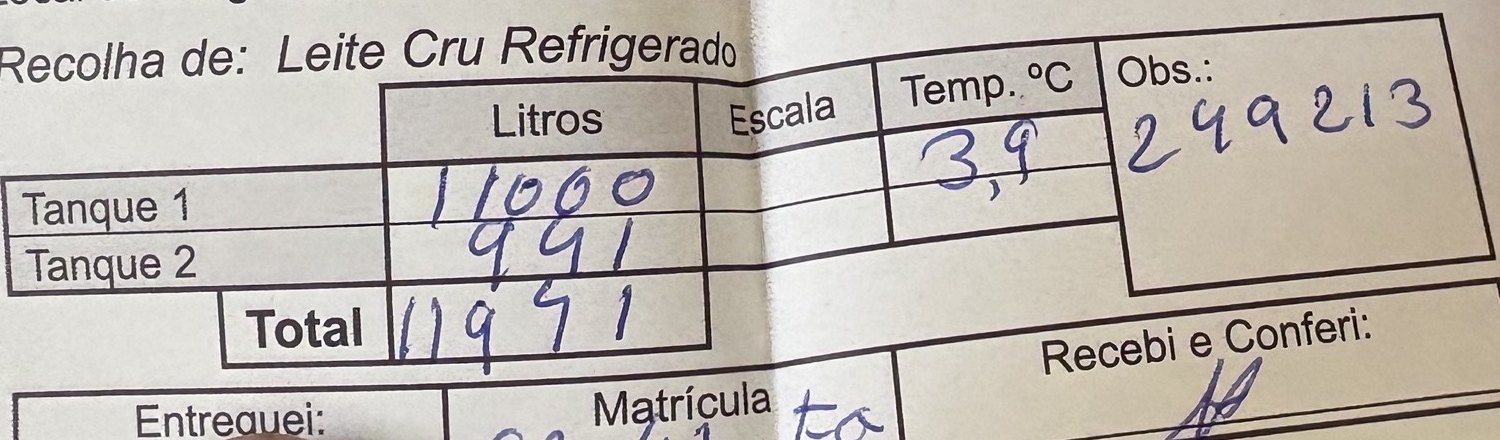 Recolha de: Leite Cru Refrigerado
Litros Escala Temp. ºC Obs.:
Tanque 1 11000 3,9 249213
Tanque 2 941
Total 11941
Recebi e Conferi:
Entreguei: Matrícula